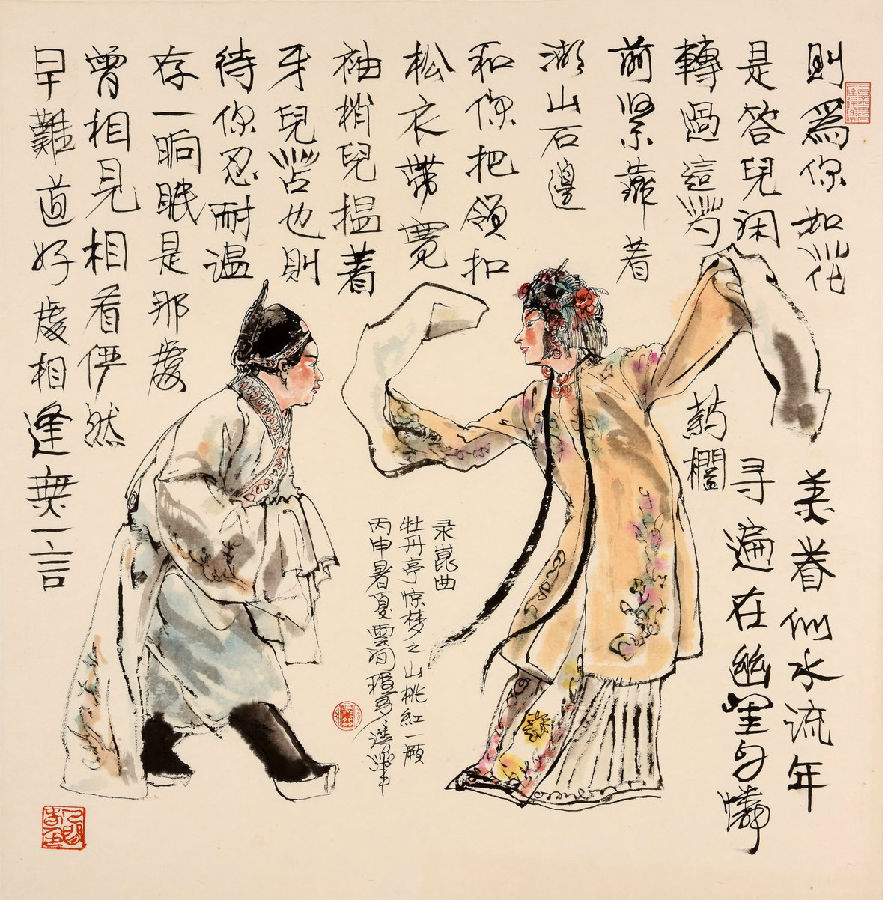 則為你如花美眷似水流年
是答兒閑寻遍在幽閨自憐
轉過這芍葯欄
前紧靠着
湖山石邊
和你把領扣
松衣帶寬
袖梢兒揾着
牙兒苫也則
待你忍耐温
存一晌眠是那處
曾相見相看儼然
早難道好處相逢無一言
录崑曲
牡丹亭惊梦之山桃紅一阙
丙申暑夏雲间